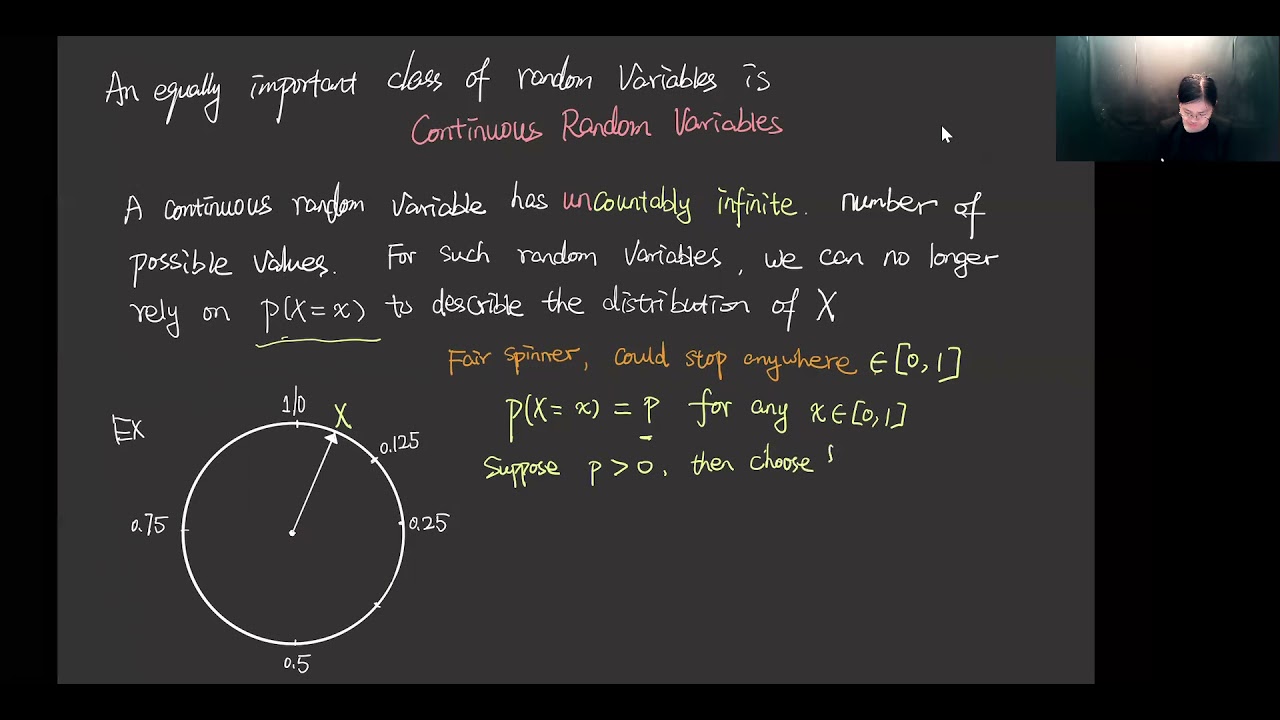 An equally important class of random variables is
Continuous Random Variables
A continuous random variable has uncountably infinite. number of
possible values. For such random variables, we can no longer
rely on P(X=x) to describle the distribution of X
Fair spinner, could stop anywhere ∈ [0,1]
P(X=x) = P for any x ∈ [0,1]
Suppose p > 0, then choose
Ex
1/0
X
0.125
0.75
0.25
0.5